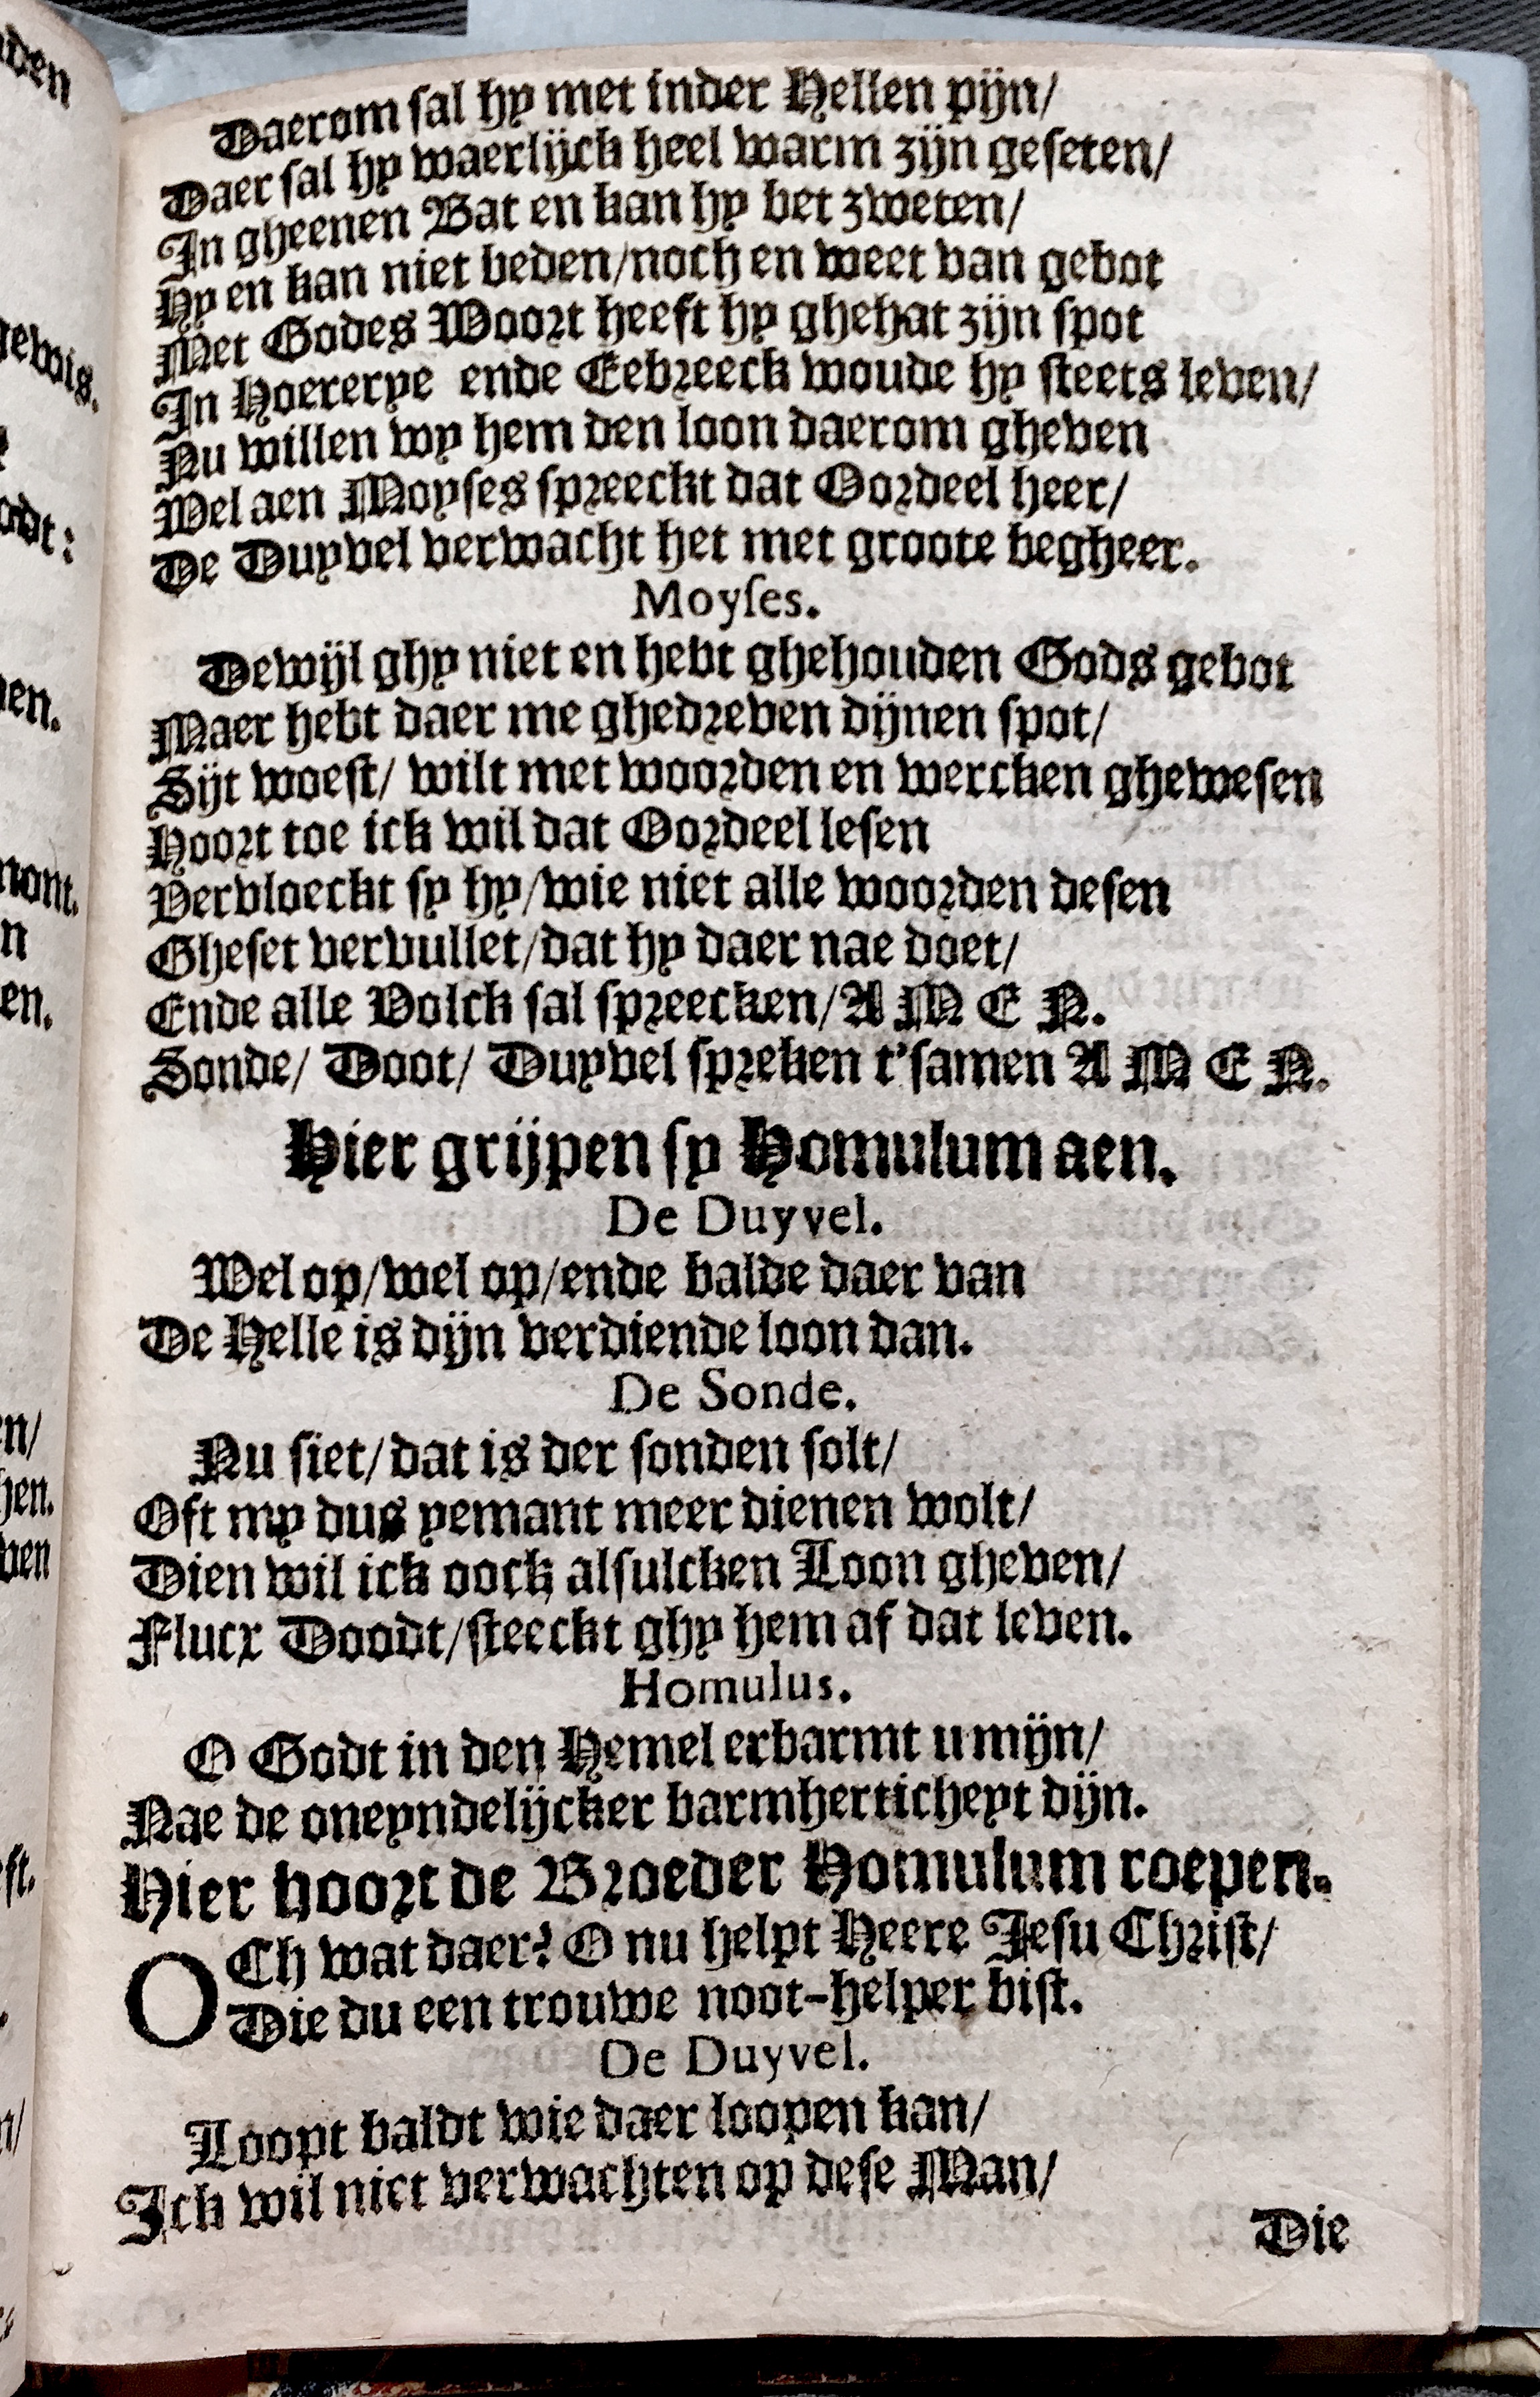 Daerom sal hy met inder Hellen pijn/
Daer sal hy waerlijck heel warm zijn geseten/
In gheenen Bat en kan hy bet zweten/
Hy en kan niet beden/noch en weet van gebot
Met Godes Woort heeft hy ghehat zijn spot
In Hoererye ende Eebreeck woude hy steets leven/
Nu willen wy hem den loon daerom gheven
Wel aen Moyses spreeckt dat Oordeel heer/
De Duyvel verwacht het met groote begheer.
Moyses.
Dewijl ghy niet en hebt ghehouden Gods gebot
Maer hebt daer me ghedreven dijnen spot/
Sijt woest/ wilt met woorden en wercken ghewesen
Hoort toe ick wil dat Oordeel lesen
Vervloeckt sy hy/wie niet alle woorden desen
Gheset vervullet/dat hy daer nae doet/
Ende alle Volck sal spreecken/A M E N.
Sonde/ Doot/ Duyvel spreken t'samen A M E N.
Hier grijpen sy Homulum aen.
De Duyvel.
Wel op/wel op/ende balde daer van
De Helle is dijn verdiende loon dan.
De Sonde.
Nu siet/dat is der sonden solt/
Oft my dus yemant meer dienen wolt/
Dien wil ick oock alsulcken Loon gheven/
Flucx Doodt/steeckt ghy hem af dat leven.
Homulus.
O Godt in den Hemel erbarmt u mijn/
Nae de oneyndelijcker barmherticheyt dijn.
Hier hoort de Broeder Homulum roepen.
OCh wat daer? O nu helpt Heere Jesu Christ/
Die du een trouwe noot-helper bist.
De Duyvel.
Loopt baldt wie daer loopen kan/
Ick wil niet verwachten op dese Man/
Die